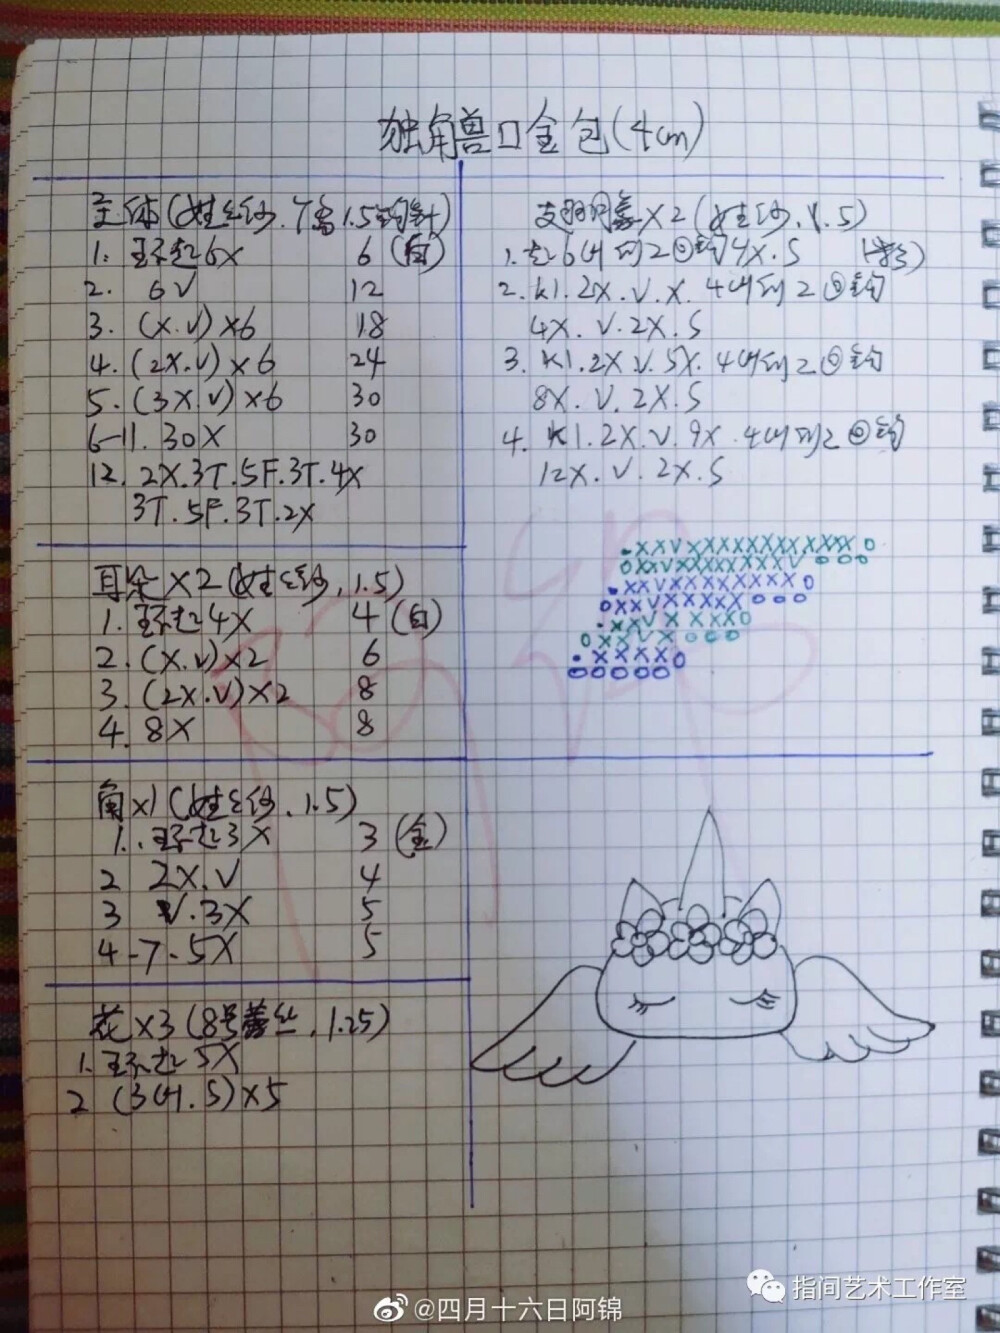 独角兽口金包(4cm)
主体(姓纱.可高1.5钩针)
1. 环起6X 6 (白)
2. 6V 12
3. (X.V)×6 18
4. (2X.V)×6 24
5. (3X.V)×6 30
6-11. 30X 30
12. 2X.3T.5F.3T.4X
3T.5F.3T.2X
耳朵×2(纱,1.5)
1. 环起4X 4 (白)
2. (X.V)×2 6
3. (2X.V)×2 8
4. 8X 8
角×1(纱.1.5)
1. 环起3X 3 (金)
2 2X.V 4
3 V.3X 5
4-7. 5X 5
花×3(8号蕾丝,1.25)
1. 环起5X
2 (3CH.S)×5
翅膀×2(纱,1.5)
1. 起6CH 倒2钩4X.S
2. K1.2X.V.X. 4CH倒2钩
4X.V.2X.S
3. K1.2X.V.5X.4CH倒2钩
8X.V.2X.S
4. K1.2X.V.9X.4CH倒2钩
12X.V.2X.S
指间艺术工作室
@四月十六日阿锦